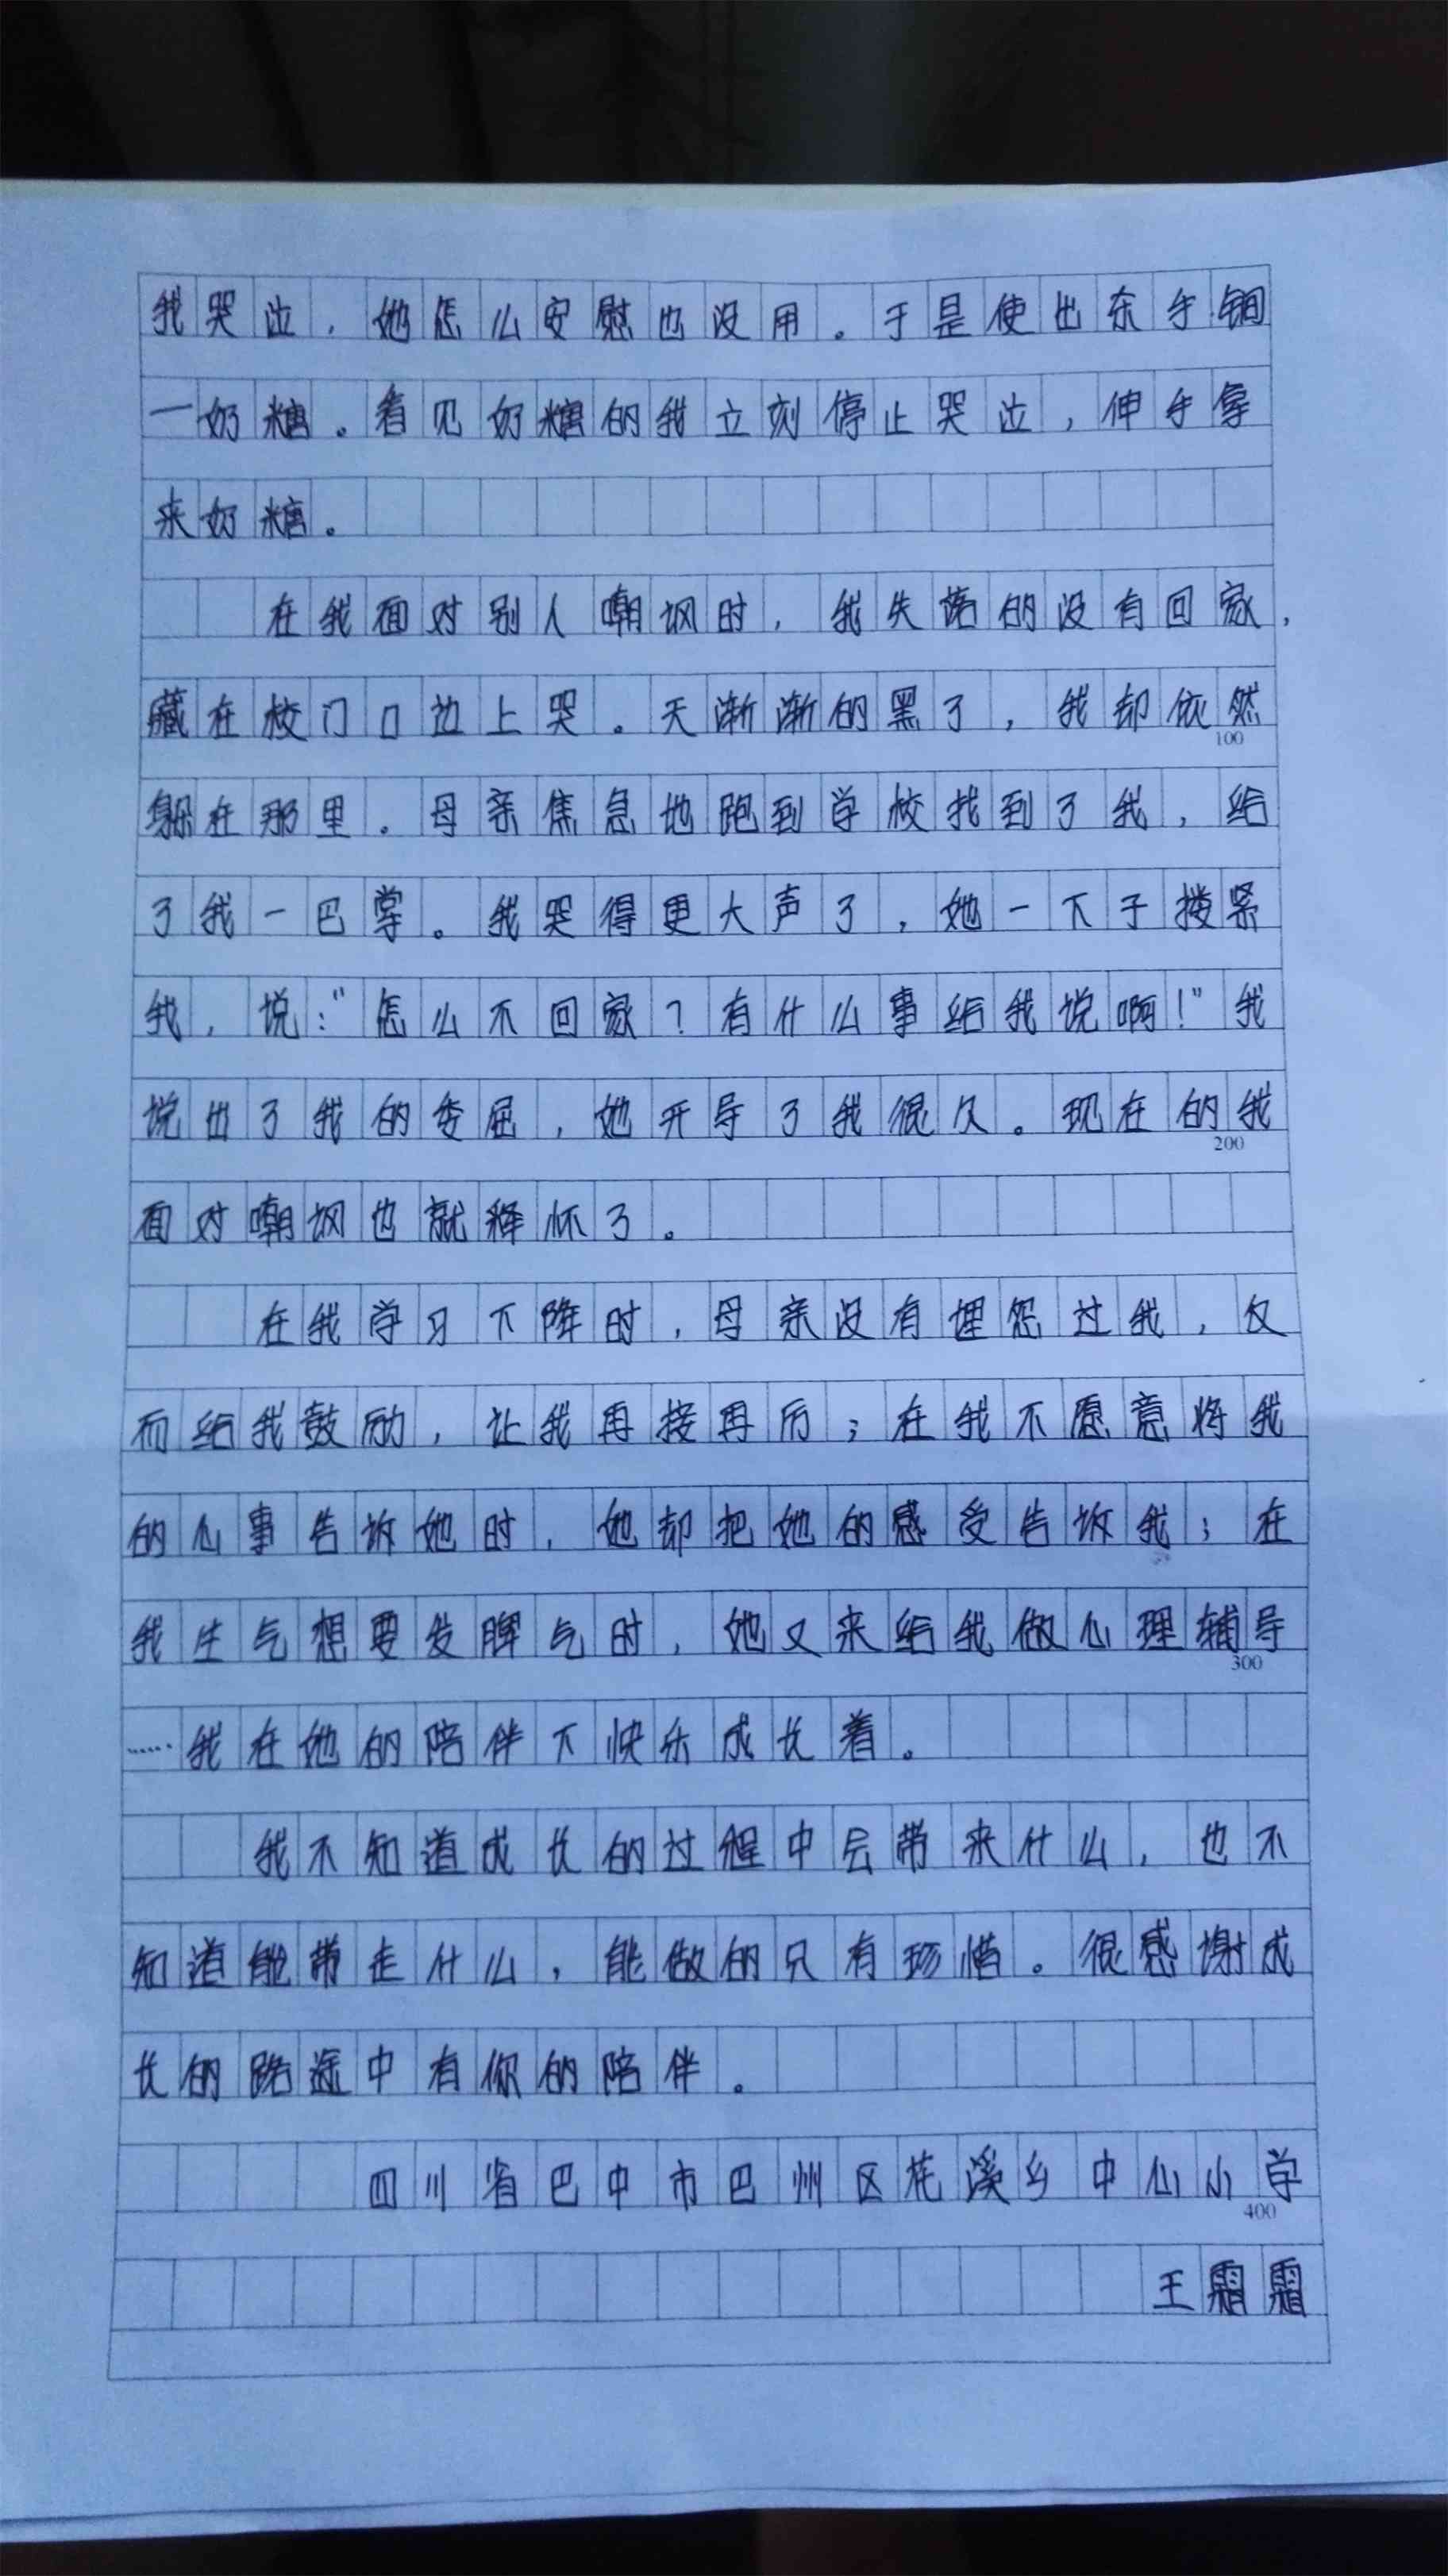 我哭泣，她怎么安慰也没用。于是使出杀手锏
一奶糖。看见奶糖的我立刻停止哭泣，伸手拿
来奶糖。
在我面对别人嘲讽时，我失落的没有回家，
藏在校门口边上哭。天渐渐的黑了，我却依然
100
躲在那里。母亲焦急地跑到学校找到了我，给
了我一巴掌。我哭得更大声了，她一下子搂紧
我，说："怎么不回家？有什么事给我说啊！"我
说出了我的委屈，她开导了我很久。现在的我
200
面对嘲讽也就释怀了。
在我学习下降时，母亲没有埋怨过我，反
而给我鼓励，让我再接再厉；在我不愿意将我
的心事告诉她时，她却把她的感受告诉我；在
我生气想要发脾气时，她又来给我做心理辅导
300
……我在她的陪伴下快乐成长着。
我不知道成长的过程中会带来什么，也不
知道能带走什么，能做的只有珍惜。很感谢成
长的路途中有你的陪伴。
四川省巴中市巴州区花溪乡中心小学
400
王霜霜